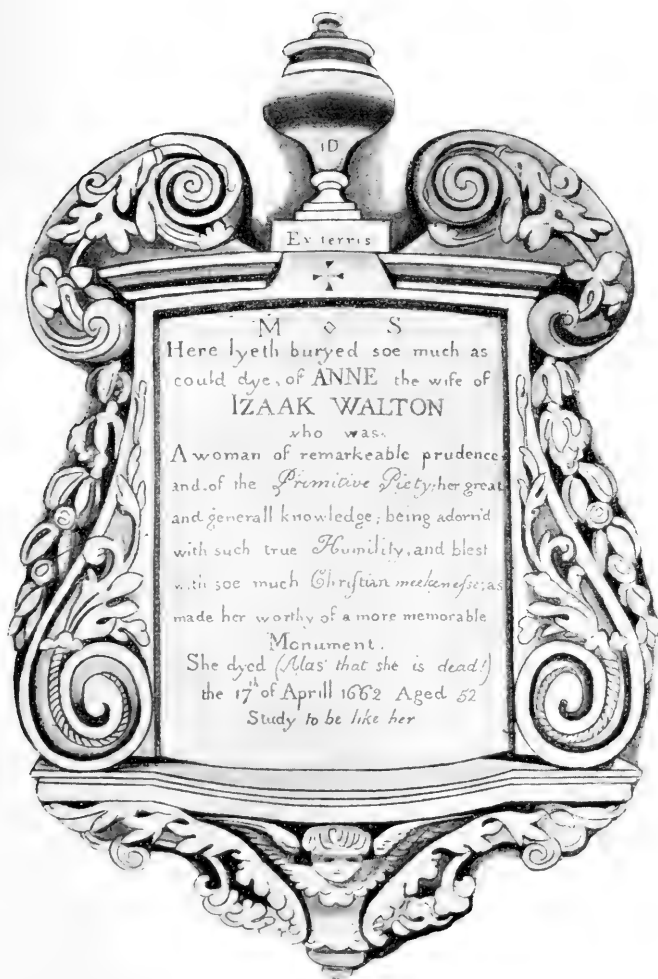 1D
Ex terris
M ◇ S
Here lyeth buryed soe much as
could dye, of ANNE the wife of
IZAAK WALTON
who was.
A woman of remarkeable prudence
and of the Primitive Piety; her great
and generall knowledge; being adornd
with such true Humility, and blest
with soe much Christian meekenesse; as
made her worthy of a more memorable
Monument.
She dyed (Alas that she is dead!)
the 17th of Aprill 1662 Aged 52
Study to be like her